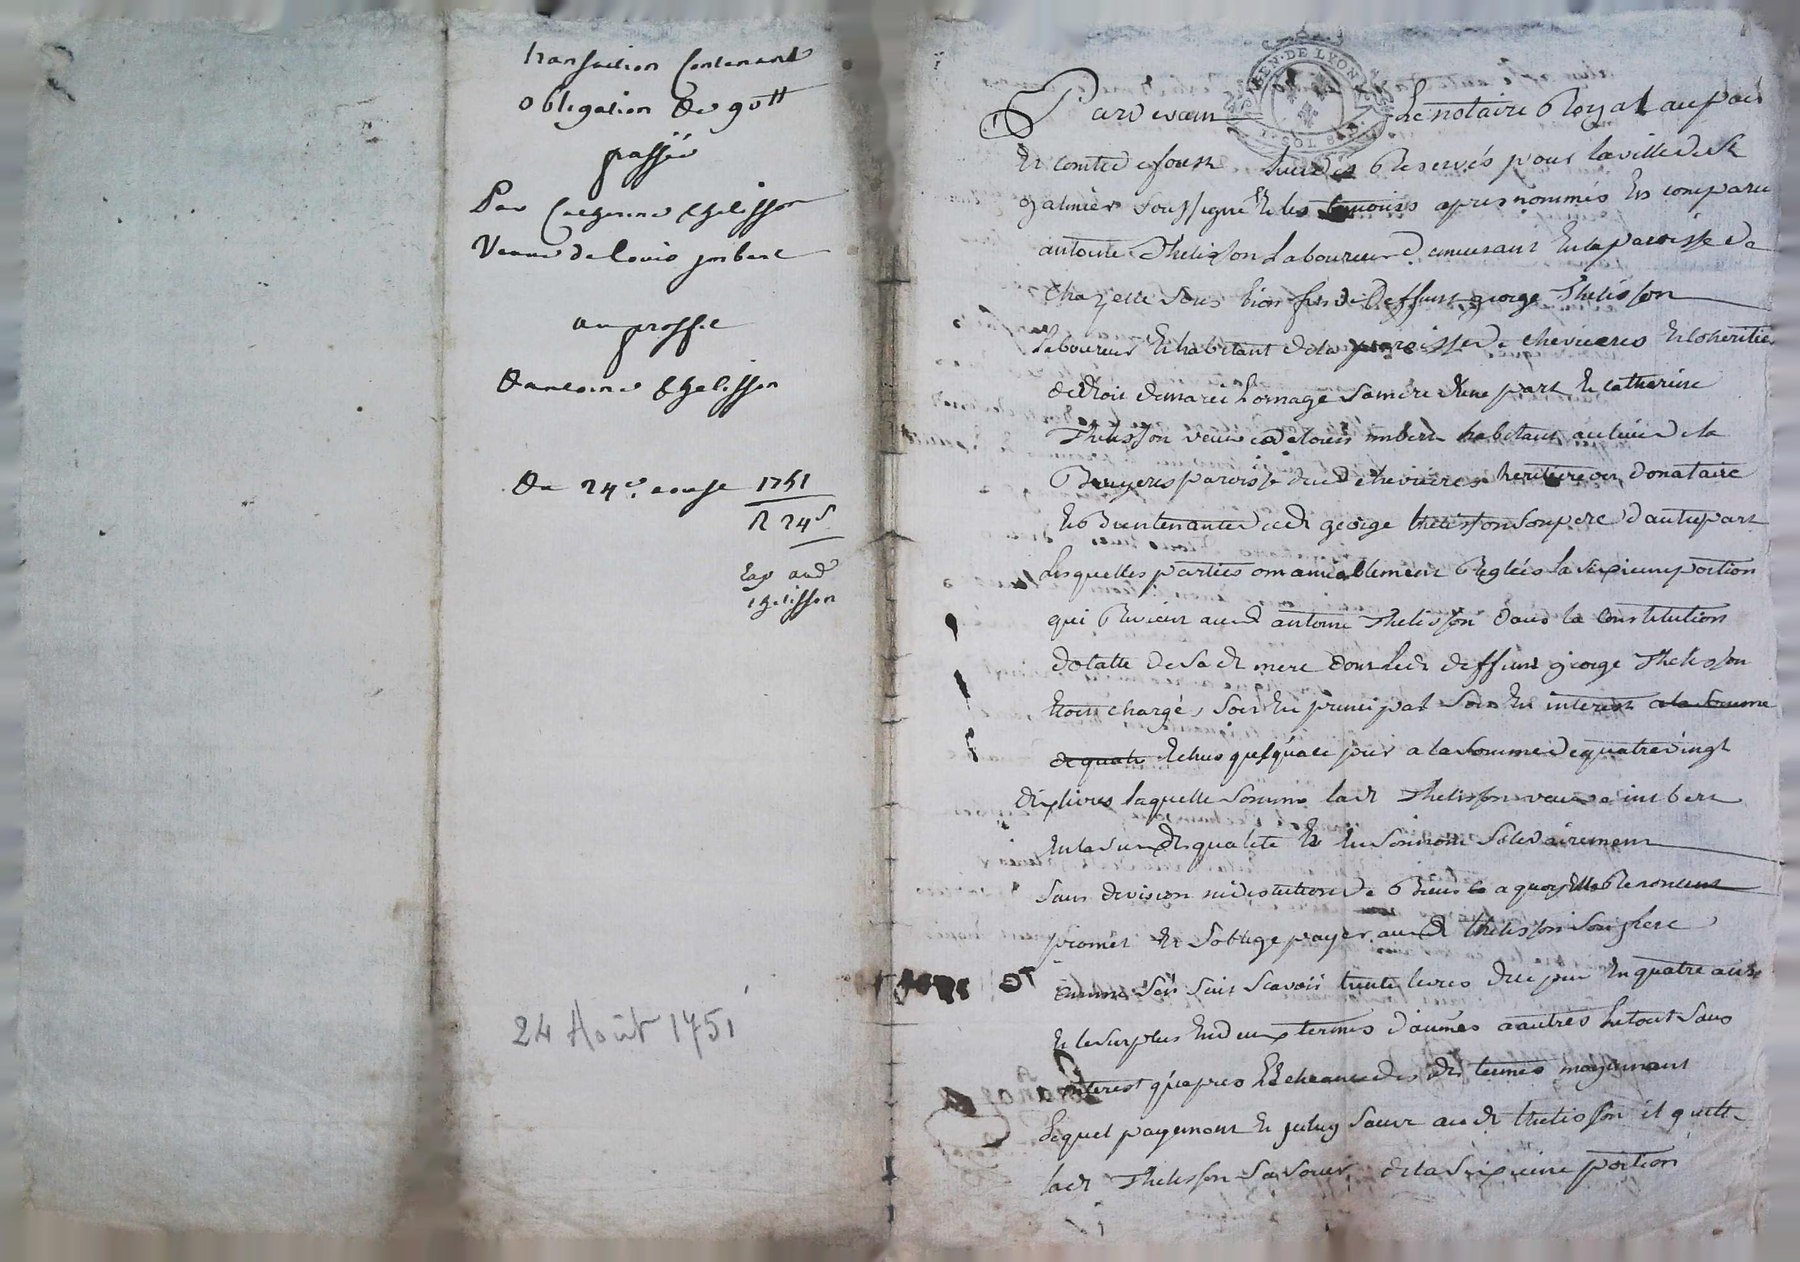 transaction Contenant
obligation de 90 tt
passée
Par Catherine thelisson
Veuve de Louis jmbert
au proffit
Dantoine thelisson
Du 24e. aoust 1751
R 24 s
Exp and
thelisson
24 Août 1751
GEN. DE LYON
1. SOL 8
Pardevant Le notaire Royal au païs
Et comté de forest Reservés pour la ville de st
galmier soussigné Et les temoins apres nommés Est comparu
antoine Thelisson Laboureur En la paroisse de
Chazelle sous lion fils de Deffunt george Thelisson
Laboureur Et habitant de la paroisse de chevrieres Et coheritier
de droit de marie Lornage sa mere d'une part Et catherine
Thelisson veuve de louis imbert habitant au lieu de la
Bruyeres paroisse du d chevrieres heritiere ou donataire
Et Bientenante du dt george thelisson son pere d'autre part
Lesquelles parties ont amiablement Reglées la sixieme portion
qui Revient aud antoine Thelisson dans la Constitution
dotalle de sa dt mere dont Le dt deffunt george Thelisson
Etoit chargé, soit En principal soit En interest a la somme
de quatre Echus jusqu'a ce jour a la somme de quatre vingt
dix livres laquelle somme la dt Thelisson veuve imbert
En la susdt qualité Et En son nom solidairement
sans division ni discution de Biens a quoy Elle Renonceut
promet Et s'oblige payer au dt thelisson son frere
comme s'en suit scavoir trente livres En quatre ans
Et le surplus En deux termes d'années a autres Le tout sans
interest qu'apres L'Echeance des dts termes moyennant
Lequel payement Et jceluy sauve au dt thelisson il quitte
la dt Thelisson sa sœur de la sixieme portion